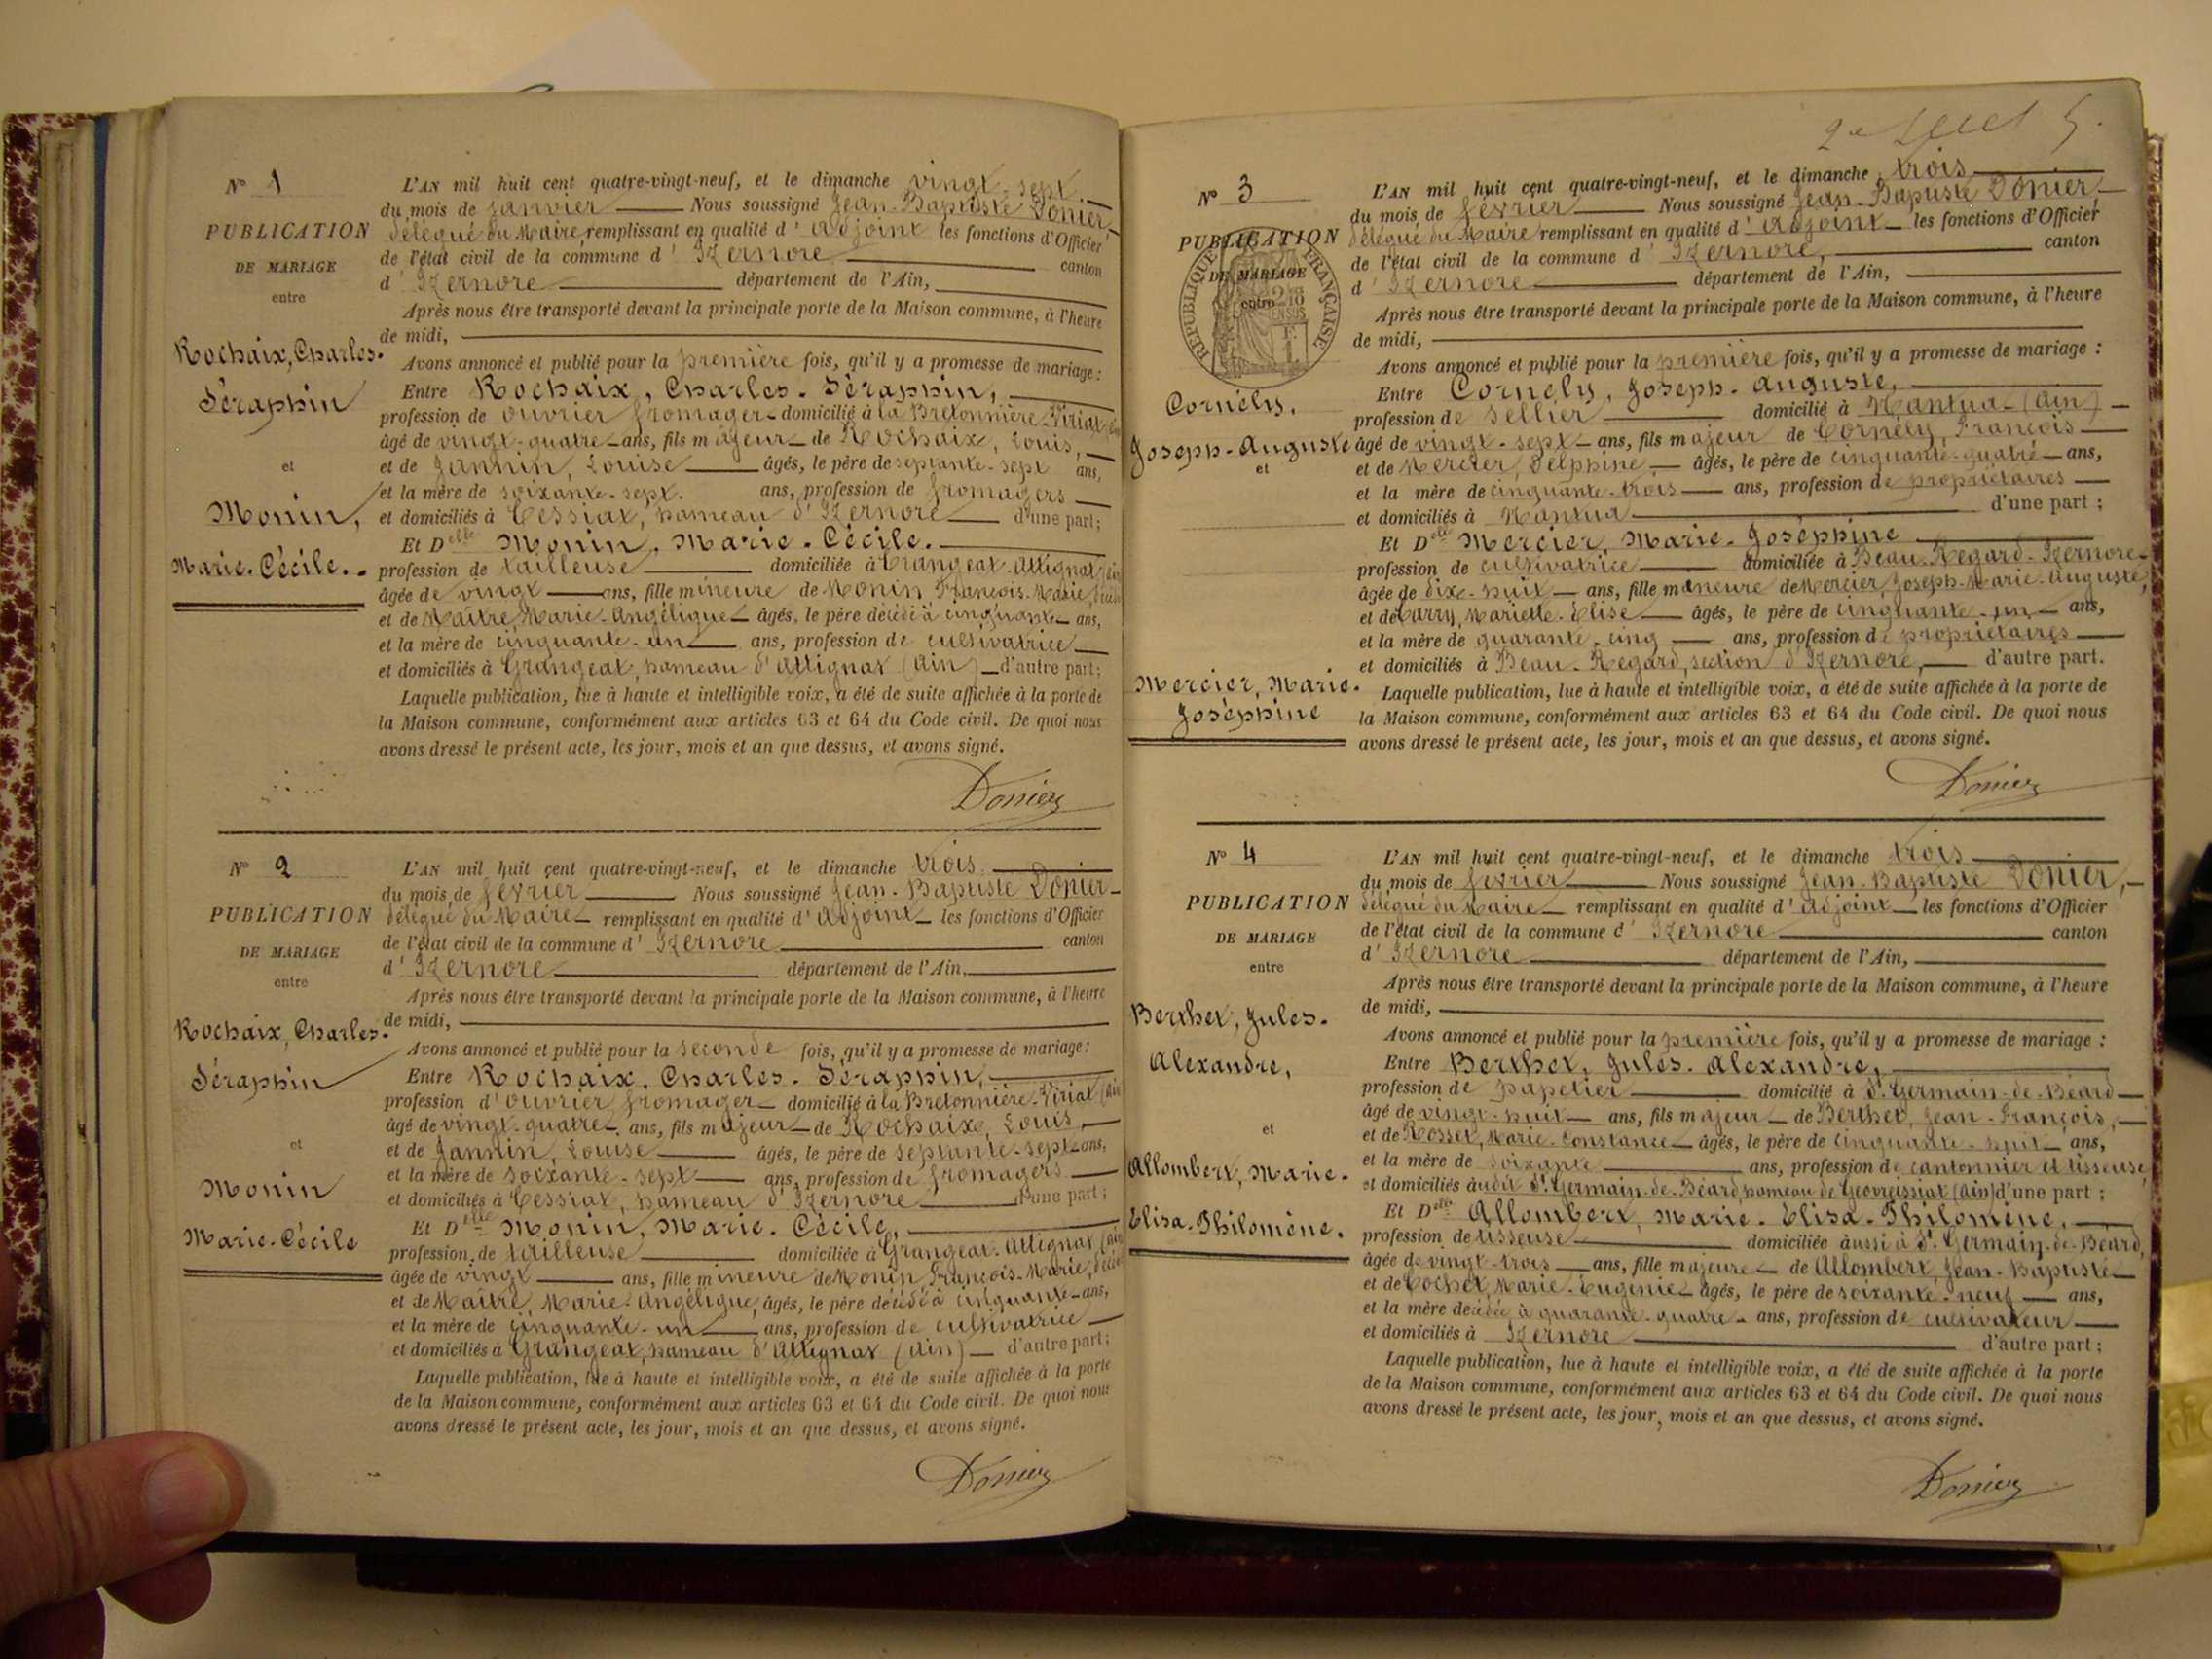 Nº 1
PUBLICATION
DE MARIAGE
entre
Rochaix, Charles-
Séraphin
et
Monin,
Marie-Cécile.
L'AN mil huit cent quatre-vingt-neuf, et le dimanche vingt-sept
du mois de Janvier Nous soussigné Jean-Baptiste Donier,
délégué du Maire, remplissant en qualité d'Adjoint les fonctions d'Officier
de l'état civil de la commune d'Izernore canton
d'Izernore département de l'Ain,
Après nous être transporté devant la principale porte de la Maison commune, à l'heure
de midi,
Avons annoncé et publié pour la première fois, qu'il y a promesse de mariage :
Entre Rochaix, Charles-Séraphin,
profession de ouvrier fromager domicilié à la Bretonnière-Viriat
âgé de vingt-quatre ans, fils majeur de Rochaix, Louis,
et de Jannin, Louise âgés, le père de septante-sept ans,
et la mère de soixante-sept. ans, profession de fromagers
et domiciliés à Cessiat, hameau d'Izernore d'une part ;
Et Delle Monin, Marie-Cécile.
profession de tailleuse domiciliée à Grangeat-Attignat (Ain
âgée de vingt ans, fille mineure de Monin François-Marie,
et de Maître Marie-Angélique âgés, le père décédé à cinquante ans,
et la mère de cinquante-un ans, profession de cultivatrice
et domiciliés à Grangeat, hameau d'Attignat (Ain) d'autre part ;
Laquelle publication, lue à haute et intelligible voix, a été de suite affichée à la porte de
la Maison commune, conformément aux articles 63 et 64 du Code civil. De quoi nous
avons dressé le présent acte, les jour, mois et an que dessus, et avons signé.
Donier
Nº 2
PUBLICATION
DE MARIAGE
entre
Rochaix, Charles-
Séraphin
et
Monin
Marie-Cécile
L'AN mil huit cent quatre-vingt-neuf, et le dimanche trois
du mois de février Nous soussigné Jean-Baptiste Donier
délégué du Maire remplissant en qualité d'Adjoint les fonctions d'Officier
de l'état civil de la commune d'Izernore canton
d'Izernore département de l'Ain,
Après nous être transporté devant la principale porte de la Maison commune, à l'heure
de midi,
Avons annoncé et publié pour la seconde fois, qu'il y a promesse de mariage :
Entre Rochaix, Charles-Séraphin,
profession d'ouvrier fromager domicilié à la Bretonnière-Viriat (Ain
âgé de vingt-quatre ans, fils majeur de Rochaix, Louis,
et de Jannin, Louise âgés, le père de septante-sept ans,
et la mère de soixante-sept ans, profession de fromagers
et domiciliés à Cessiat, hameau d'Izernore d'une part ;
Et Delle Monin, Marie-Cécile,
profession de tailleuse domiciliée à Grangeat-Attignat (Ain
âgée de vingt ans, fille mineure de Monin, François-Marie,
et de Maître, Marie-Angélique, âgés, le père décédé à cinquante ans,
et la mère de cinquante-un ans, profession de cultivatrice
et domiciliés à Grangeat, hameau d'Attignat (Ain) d'autre part ;
Laquelle publication, lue à haute et intelligible voix, a été de suite affichée à la porte
de la Maison commune, conformément aux articles 63 et 64 du Code civil. De quoi nous
avons dressé le présent acte, les jour, mois et an que dessus, et avons signé.
Donier
Nº 3
PUBLICATION
DE MARIAGE
entre
RÉPUBLIQUE FRANÇAISE
Cornély,
Joseph-Auguste
et
Mercier, Marie-
Joséphine
L'AN mil huit cent quatre-vingt-neuf, et le dimanche trois
du mois de février Nous soussigné Jean-Baptiste Donier,
délégué du Maire remplissant en qualité d'Adjoint les fonctions d'Officier
de l'état civil de la commune d'Izernore, canton
d'Izernore département de l'Ain,
Après nous être transporté devant la principale porte de la Maison commune, à l'heure
de midi,
Avons annoncé et publié pour la première fois, qu'il y a promesse de mariage :
Entre Cornély, Joseph-Auguste,
profession de sellier domicilié à Nantua (Ain)
âgé de vingt-sept ans, fils majeur de Cornély, François
et de Mercier, Delphine âgés, le père de cinquante-quatre ans,
et la mère de cinquante-trois ans, profession de propriétaires
et domiciliés à Nantua d'une part ;
Et Delle Mercier, Marie-Joséphine
profession de cultivatrice domiciliée à Beau-Regard-Izernore
âgée de dix-huit ans, fille mineure de Mercier, Joseph-Marie-Auguste,
et de Carry, Mariette-Elise âgés, le père de cinquante-un ans,
et la mère de quarante-cinq ans, profession de propriétaires
et domiciliés à Beau-Regard, section d'Izernore, d'autre part.
Laquelle publication, lue à haute et intelligible voix, a été de suite affichée à la porte de
la Maison commune, conformément aux articles 63 et 64 du Code civil. De quoi nous
avons dressé le présent acte, les jour, mois et an que dessus, et avons signé.
Donier
Nº 4
PUBLICATION
DE MARIAGE
entre
Berthet, Jules-
Alexandre,
et
Allombert, Marie-
Elisa-Philomène.
L'AN mil huit cent quatre-vingt-neuf, et le dimanche trois
du mois de février Nous soussigné Jean-Baptiste Donier,
délégué du Maire remplissant en qualité d'Adjoint les fonctions d'Officier
de l'état civil de la commune d'Izernore canton
d'Izernore département de l'Ain,
Après nous être transporté devant la principale porte de la Maison commune, à l'heure
de midi,
Avons annoncé et publié pour la première fois, qu'il y a promesse de mariage :
Entre Berthet, Jules-Alexandre,
profession de papetier domicilié à St Germain-de-Béard
âgé de vingt-huit ans, fils majeur de Berthet, Jean-François,
et de Rosset, Marie-Constance âgés, le père de cinquante-huit ans,
et la mère de soixante ans, profession de cantonnier et tisseuse
et domiciliés audit St Germain-de-Béard, hameau de Géovreissiat (Ain) d'une part ;
Et Delle Allombert, Marie-Elisa-Philomène,
profession de tisseuse domiciliée aussi à St Germain-de-Béard,
âgée de vingt-trois ans, fille majeure de Allombert, Jean-Baptiste
et de Cochet, Marie-Eugénie âgés, le père de soixante-neuf ans,
et la mère décédée à quarante-quatre ans, profession de cultivateur
et domiciliés à Izernore d'autre part ;
Laquelle publication, lue à haute et intelligible voix, a été de suite affichée à la porte
de la Maison commune, conformément aux articles 63 et 64 du Code civil. De quoi nous
avons dressé le présent acte, les jour, mois et an que dessus, et avons signé.
Donier